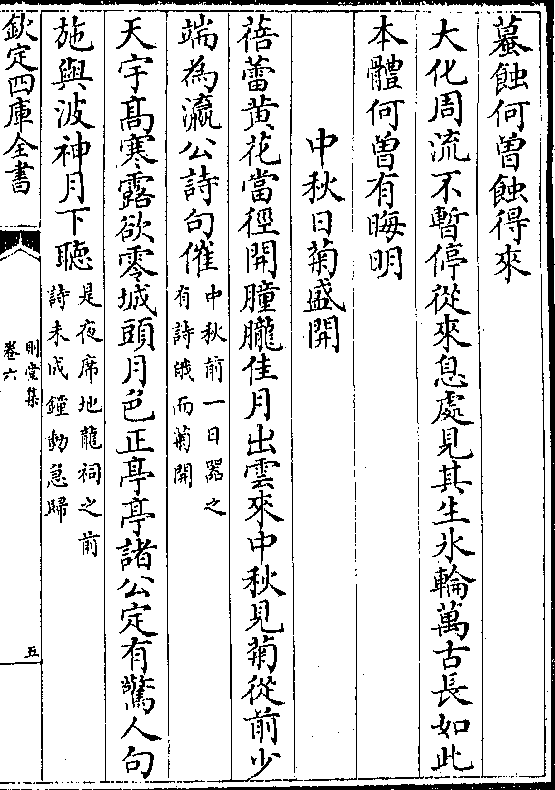 蟇蝕何曾蝕得來
大化周流不暫停從來息處見其生氷輪萬古長如此
本體何曾有晦明
中秋日菊盛開
蓓蕾黄花當徑開朣朧佳月出雲來中秋見菊從前少
端為瀛公詩句催
中秋前一日器之
有詩哦而菊開
天宇髙寒露欲零城頭月色正亭亭諸公定有驚人句
施與波神月下聽
是夜席地龍祠之前
詩未成鐘動急歸
欽定四庫全書
則堂集
卷六
五